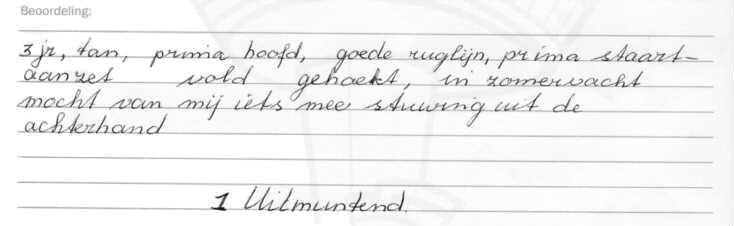 Beoordeling:
3 jr, tan, prima hoofd, goede ruglijn, prima staart-
aanzet vold gehoekt, in zomervacht
mocht van mij iets mee stuwing uit de
achterhand
1 Uitmuntend.